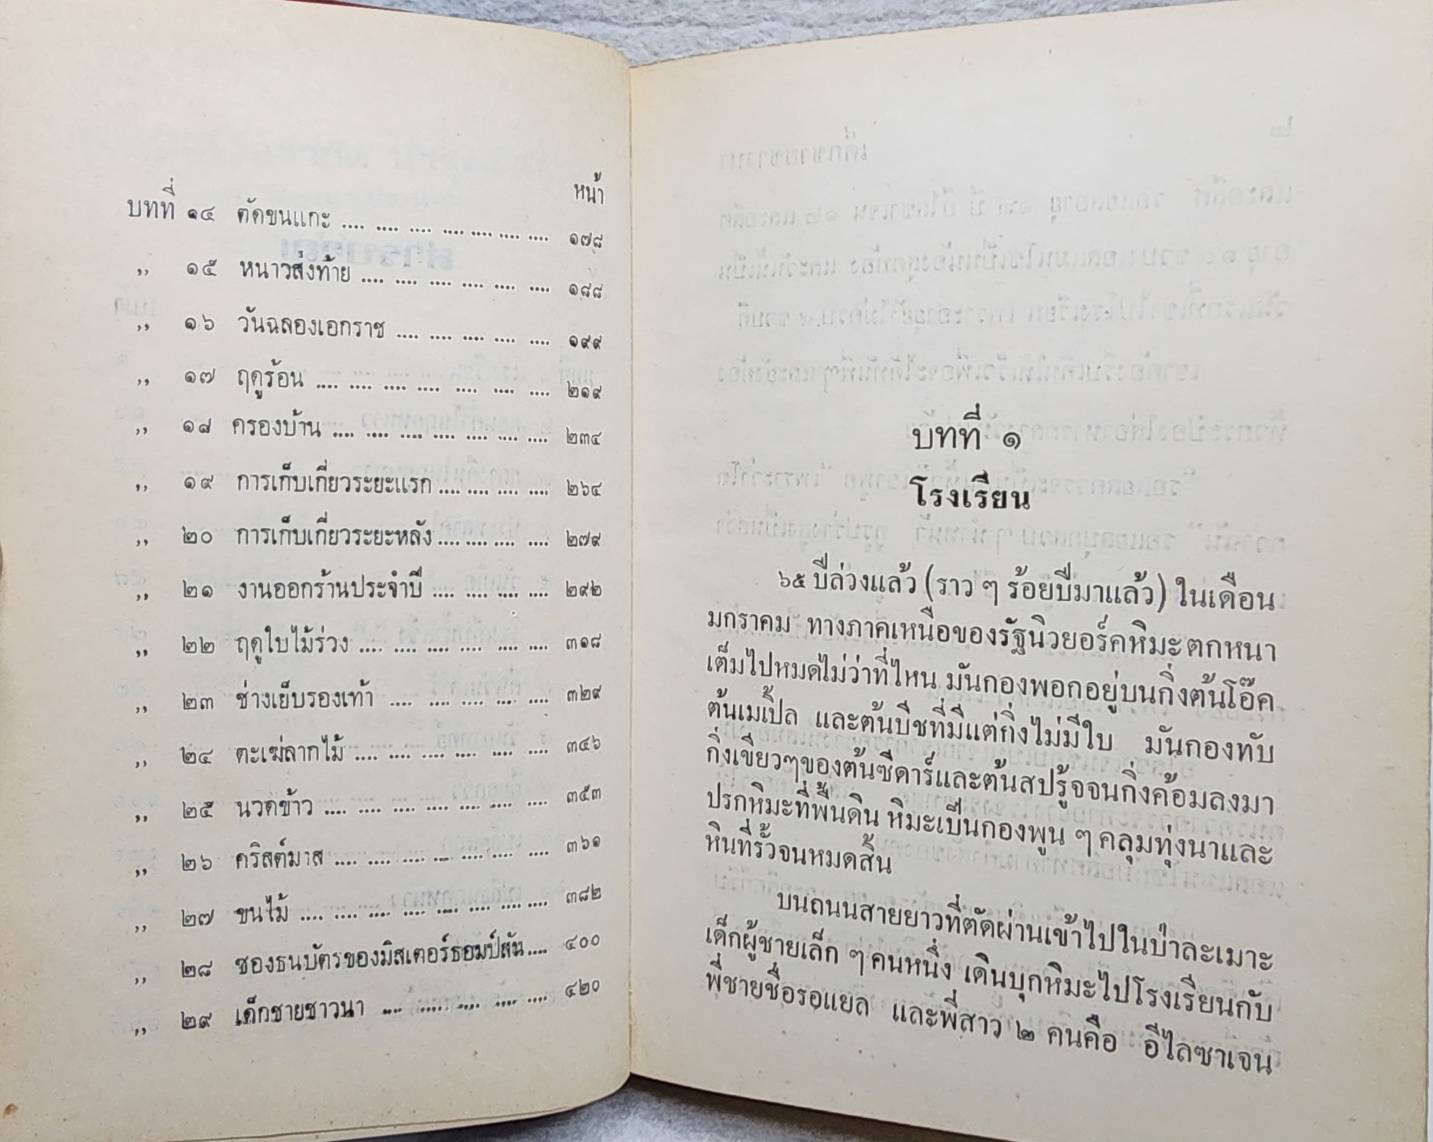 หน้า
บทที่ ๑๔ ตัดขนแกะ .... .... .... .... .... .... .... ๑๗๘
,, ๑๕ หนาวส่งท้าย .... .... .... .... .... .... ๑๘๘
,, ๑๖ วันฉลองเอกราช .... .... .... .... .... ๑๙๙
,, ๑๗ ฤดูร้อน .... .... .... .... .... .... .... ๒๑๙
,, ๑๘ ครองบ้าน .... .... .... .... .... .... .... ๒๓๔
,, ๑๙ การเก็บเกี่ยวระยะแรก .... .... .... .... ๒๖๔
,, ๒๐ การเก็บเกี่ยวระยะหลัง .... .... .... .... ๒๗๙
,, ๒๑ งานออกร้านประจำปี .... .... .... .... ๒๙๒
,, ๒๒ ฤดูใบไม้ร่วง .... .... .... .... .... .... ๓๑๘
,, ๒๓ ช่างเย็บรองเท้า .... .... .... .... .... ๓๒๙
,, ๒๔ ตะเฆ่ลากไม้ .... .... .... .... .... .... ๓๔๖
,, ๒๕ นวดข้าว .... .... .... .... .... .... .... ๓๕๓
,, ๒๖ คริสต์มาส .... .... .... .... .... .... .... ๓๖๑
,, ๒๗ ขนไม้ .... .... .... .... .... .... .... .... ๓๘๒
,, ๒๘ ซองธนบัตรของมิสเตอร์ธอมป์สัน .... ๔๐๐
,, ๒๙ เด็กชายชาวนา .... .... .... .... .... ๔๒๐
บทที่ ๑
โรงเรียน
๖๕ ปีล่วงแล้ว (ราว ๆ ร้อยปีมาแล้ว) ในเดือน
มกราคม ทางภาคเหนือของรัฐนิวยอร์คหิมะตกหนา
เต็มไปหมดไม่ว่าที่ไหน มันกองพอกอยู่บนกิ่งต้นโอ๊ค
ต้นเมเปิ้ล และต้นบีชที่มีแต่กิ่งไม่มีใบ มันกองทับ
กิ่งเขียวๆของต้นซีดาร์และต้นสปรู้จจนกิ่งค้อมลงมา
ปรกหิมะที่พื้นดิน หิมะเป็นกองพูน ๆ คลุมทุ่งนาและ
หินที่รั้วจนหมดสิ้น
บนถนนสายยาวที่ตัดผ่านเข้าไปในป่าละเมาะ
เด็กผู้ชายเล็ก ๆ คนหนึ่ง เดินบุกหิมะไปโรงเรียนกับ
พี่ชายชื่อรอแยล และพี่สาว ๒ คนคือ อีไลซาเจน